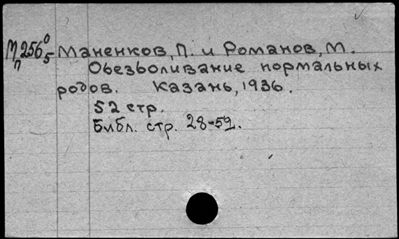 М п 256 0/5 Маненков, П. и Романов, М.
Обезболивание нормальных
родов. Казань, 1936.
52 стр.
Библ. стр. 28-52.